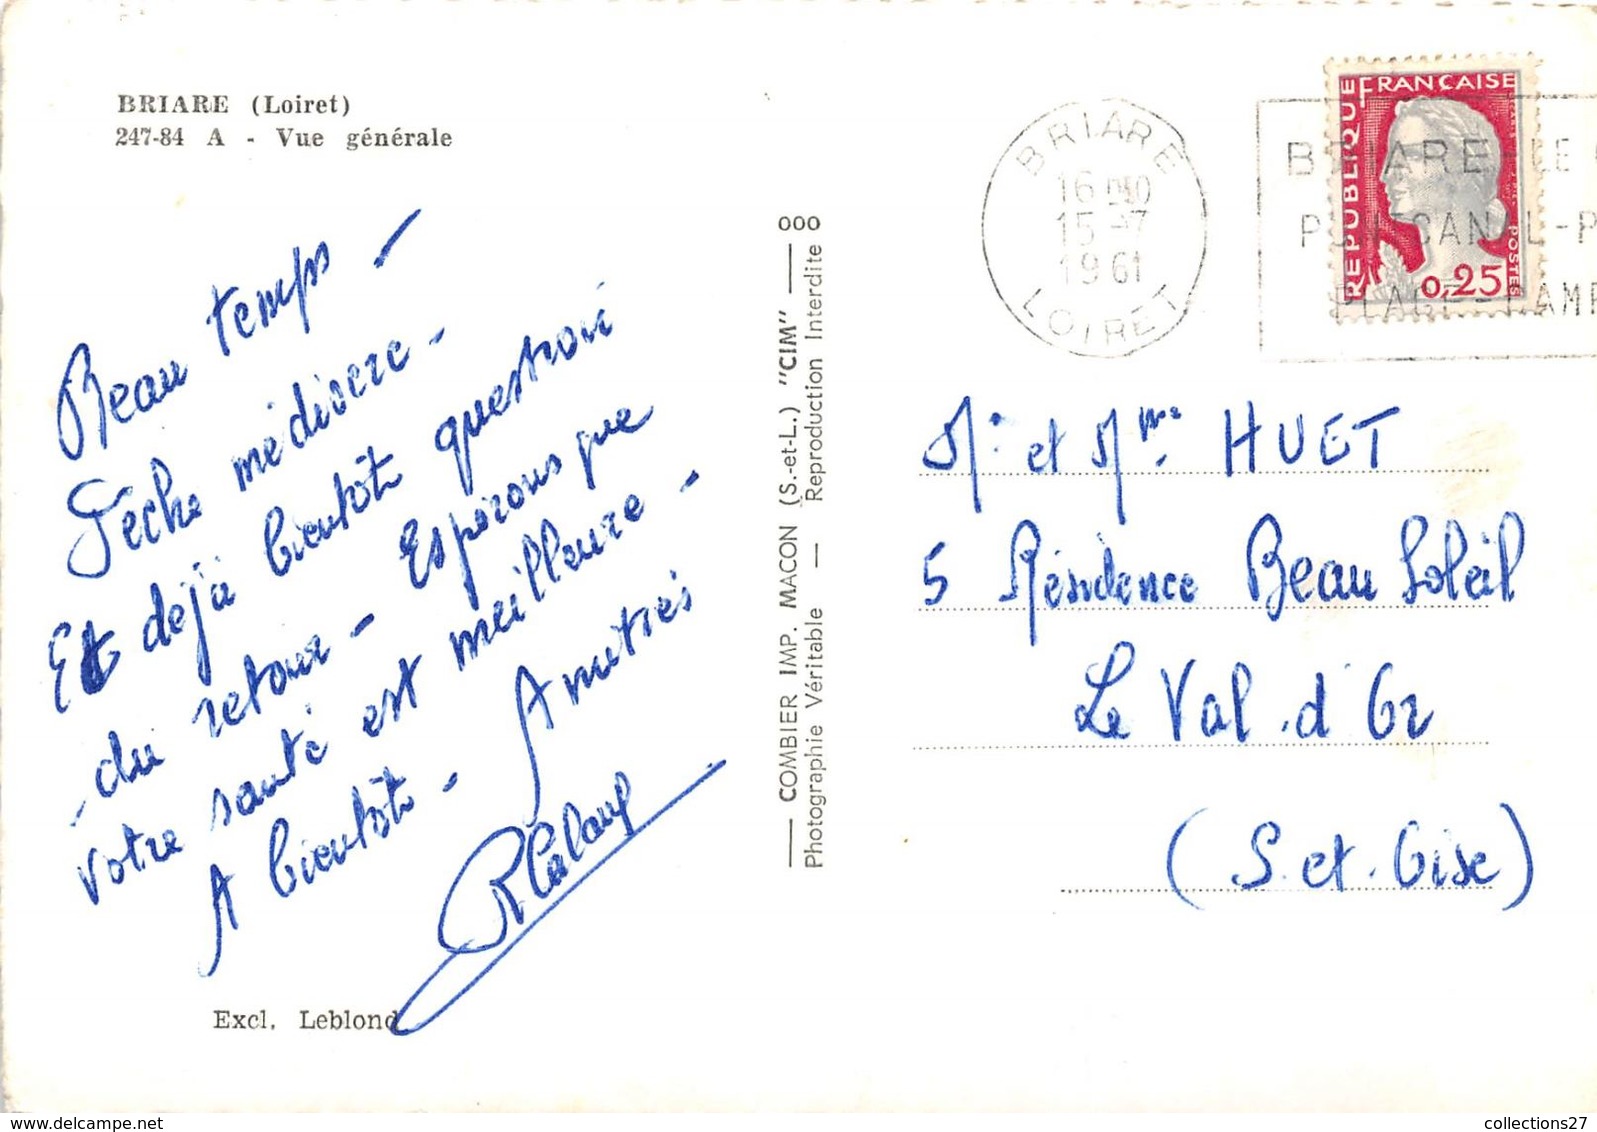 BRIARE (Loiret)
247-84 A - Vue générale
Beau temps -
Pêche médiocre -
Et déjà bientôt question
du retour - Espérons que
votre santé est meilleure -
A bientôt - Amitiés
Excl. Leblond
000
COMBIER IMP. MACON (S.-et-L.) "CIM"
Photographie Véritable — Reproduction Interdite
BRIARE
16 H30
15-7
1961
LOIRET
BRIARE-LE
PONT CANAL-P
PLAGE-CAMP
REPUBLIQUE FRANÇAISE
POSTES
0,25
Mr et Mme HUET
5 Résidence Beau Soleil
Le Val d'Or
(S. et. Oise)
collections27